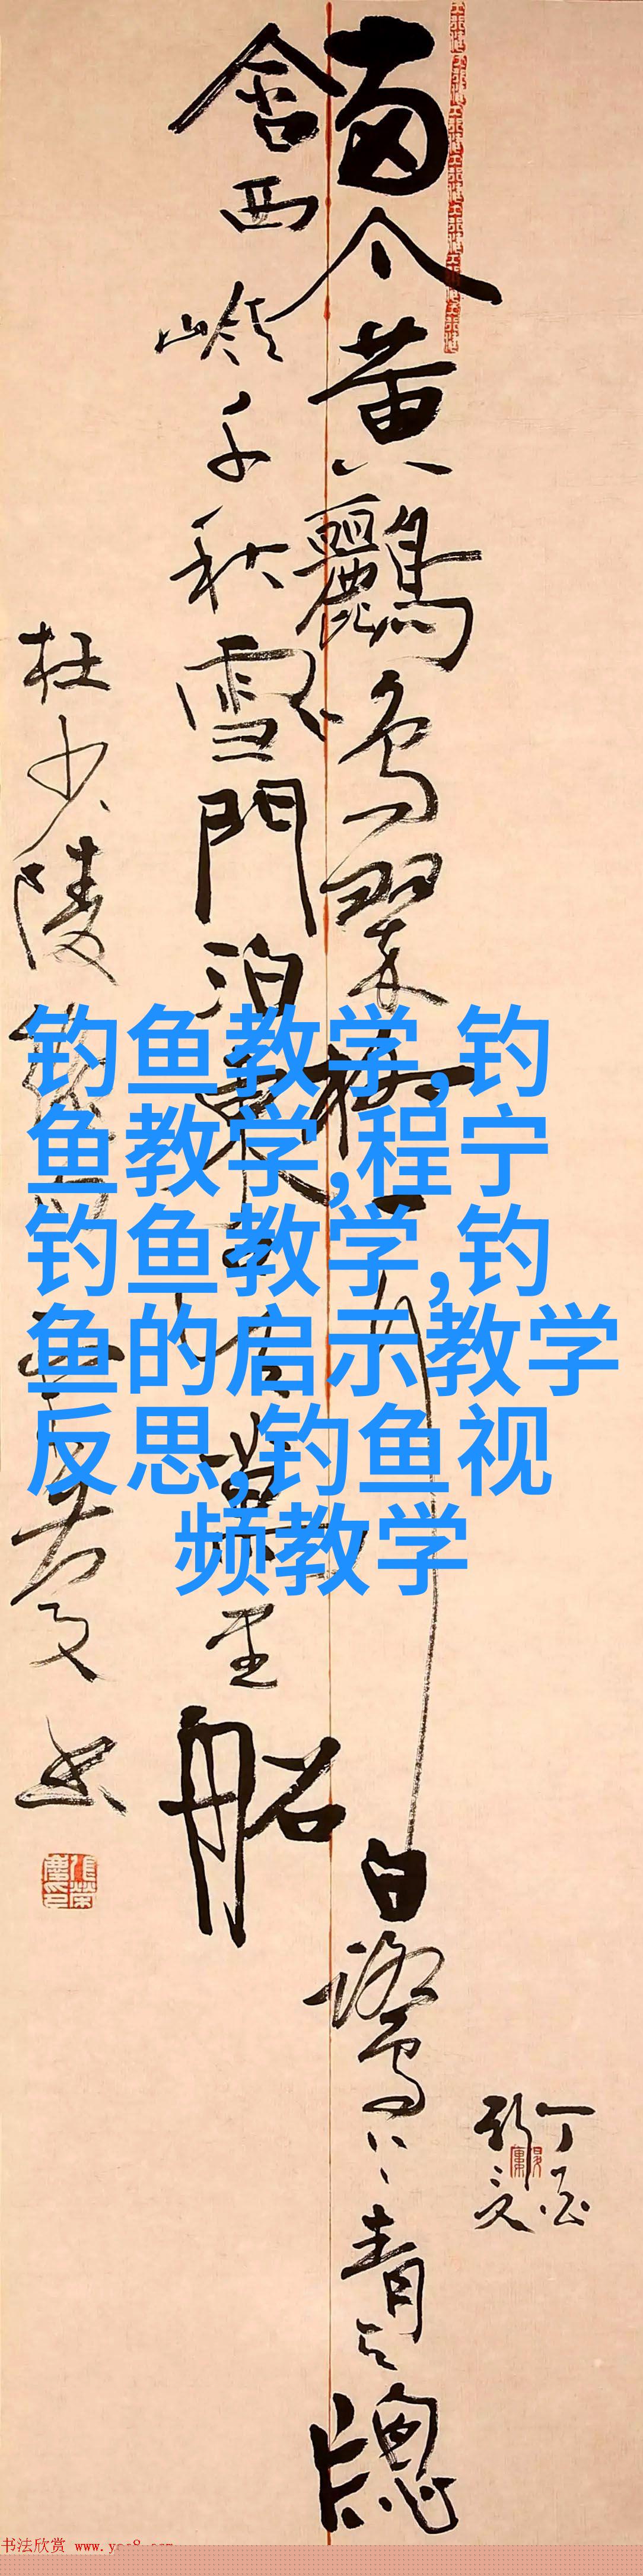 兩个黄鸝鳴翠柳一行白鷺上青天牕
含西嶺千秋雪門泊東吳萬里船
杜少陵
書
钓鱼教学,钓
鱼教学,程宁
钓鱼教学,钓
鱼的启示教学
反思,钓鱼视
频教学
书法欣赏